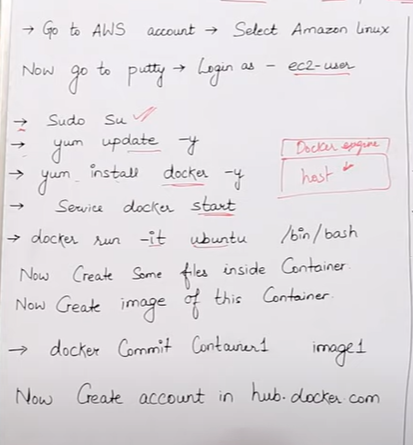 → Go to AWS account → Select Amazon Linux
Now go to putty → Login as - ec2-user
→ Sudo Su
→ yum update -y
Docker engine
→ yum install docker -y
host
→ Service docker start
→ docker run -it ubuntu /bin/bash
Now Create Some files inside Container.
Now Create image of this Container.
→ docker Commit Container1 image1
Now Create account in hub.docker.com